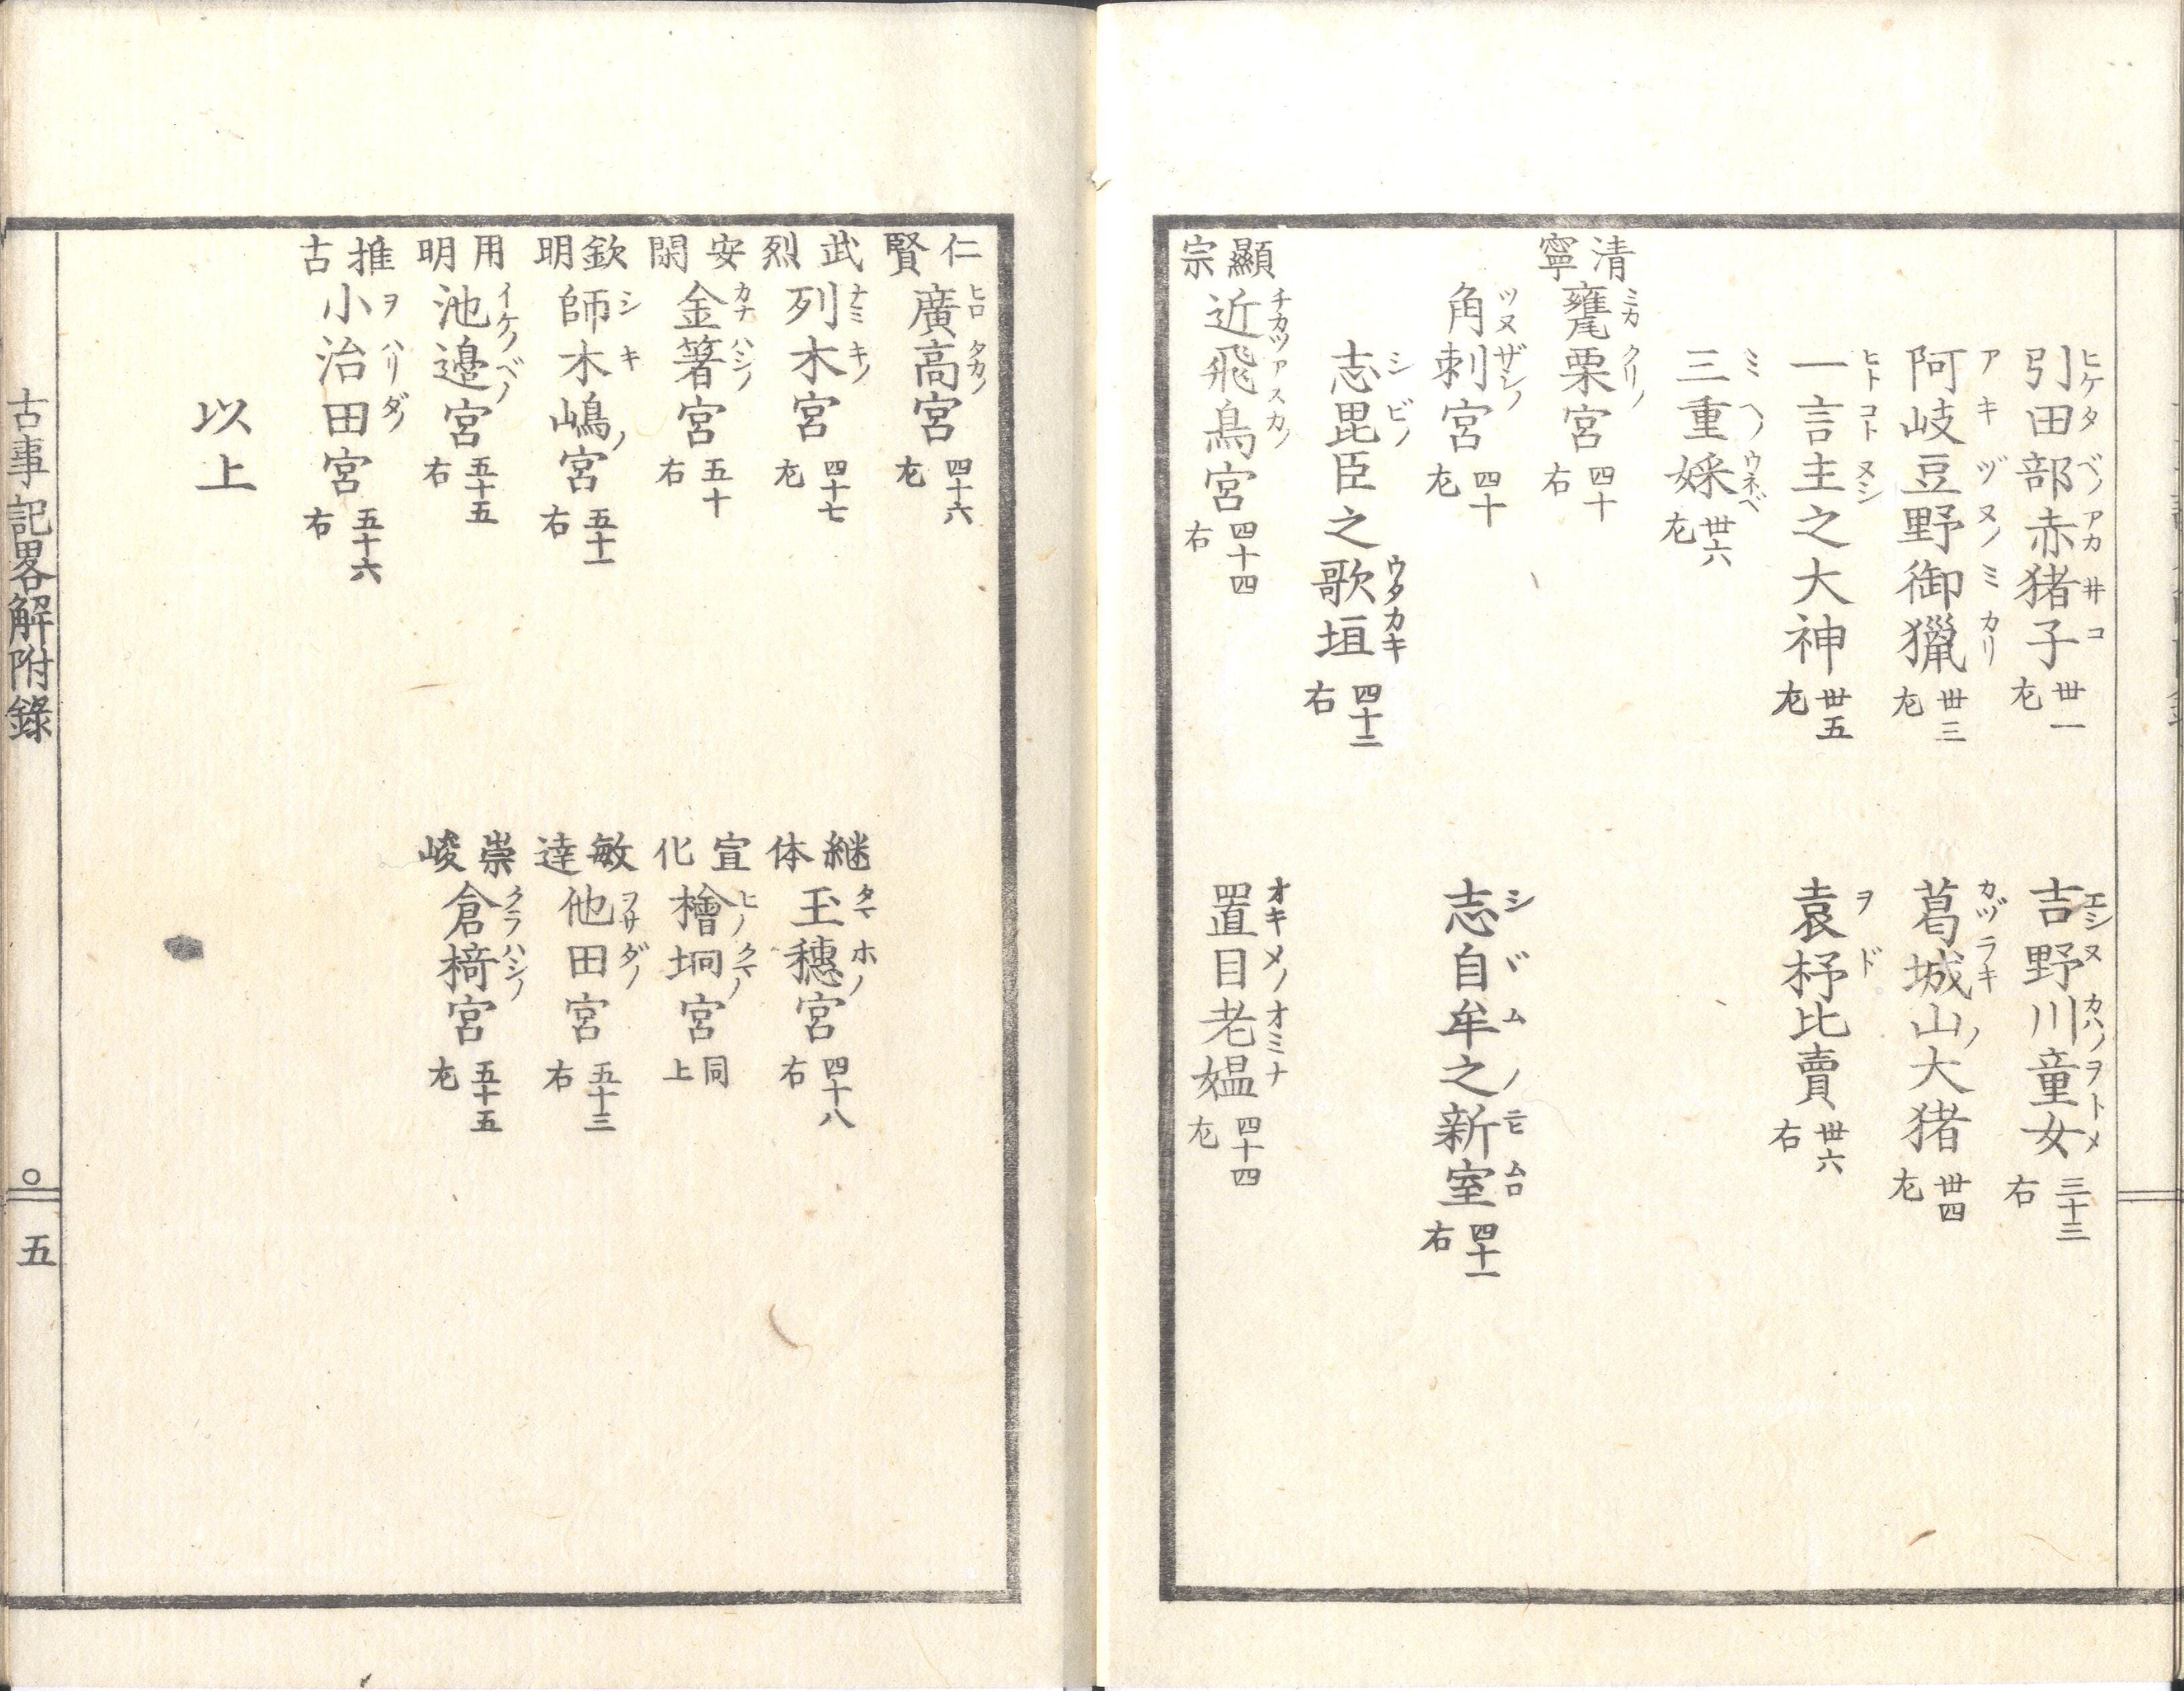 引田部赤猪子 丗一 左
吉野川童女 三十三 右
阿岐豆野御獵 丗三 左
葛城山ノ大猪 丗四 左
一言主之大神 丗五 左
袁杼比賣 丗六 右
三重婇 丗六 左
清寧 甕栗宮 四十 右
角刺宮 四十 左
志自牟之新室 四十一 右
志毘臣之歌垣 四十二 右
顯宗 近飛鳥宮 四十四 右
置目老媼 四十四 左
仁賢 廣高宮 四十六 左
武烈 列木宮 四十七 左
継体 玉穗宮 四十八 右
安閑 金箸宮 五十 右
宣化 檜坰宮 同上
欽明 師木嶋ノ宮 五十一 右
敏達 他田宮 五十三 右
用明 池邉宮 五十五 右
崇峻 倉椅宮 五十五 左
推古 小治田宮 五十六 右
以上
古事記畧解附錄 ○ 五